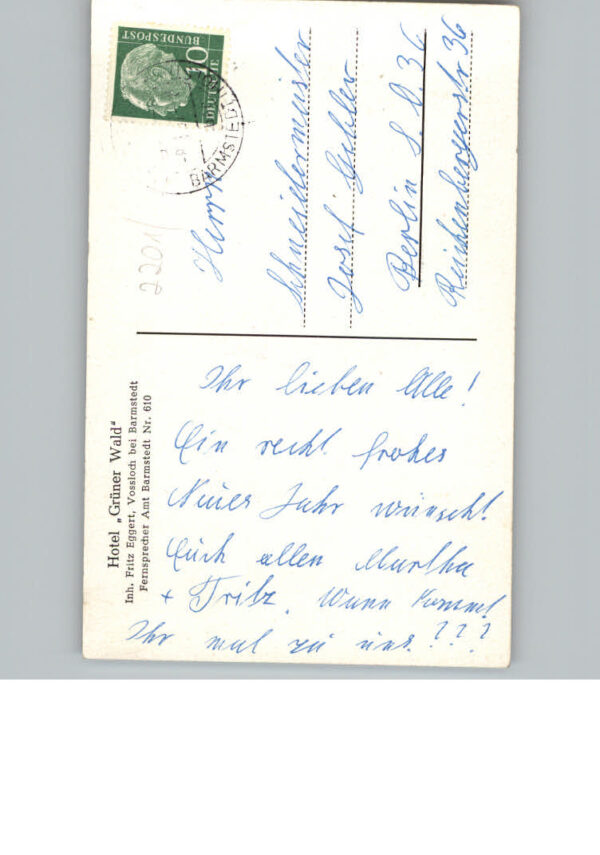 10
DEUTSCHE
BUNDESPOST
BARMSTEDT
2201
Herrn
Schneidermeister
Josef
Berlin S.O. 36
Reichenbergerstr 36
Hotel „Grüner Wald“
Inh. Fritz Eggert, Vossloch bei Barmstedt
Fernsprecher Amt Barmstedt Nr. 610
Ihr lieben Alle!
Ein recht frohes
Neues Jahr wünscht
Euch allen Martha
+ Fritz. Wann kommt
Ihr mal zu uns.???